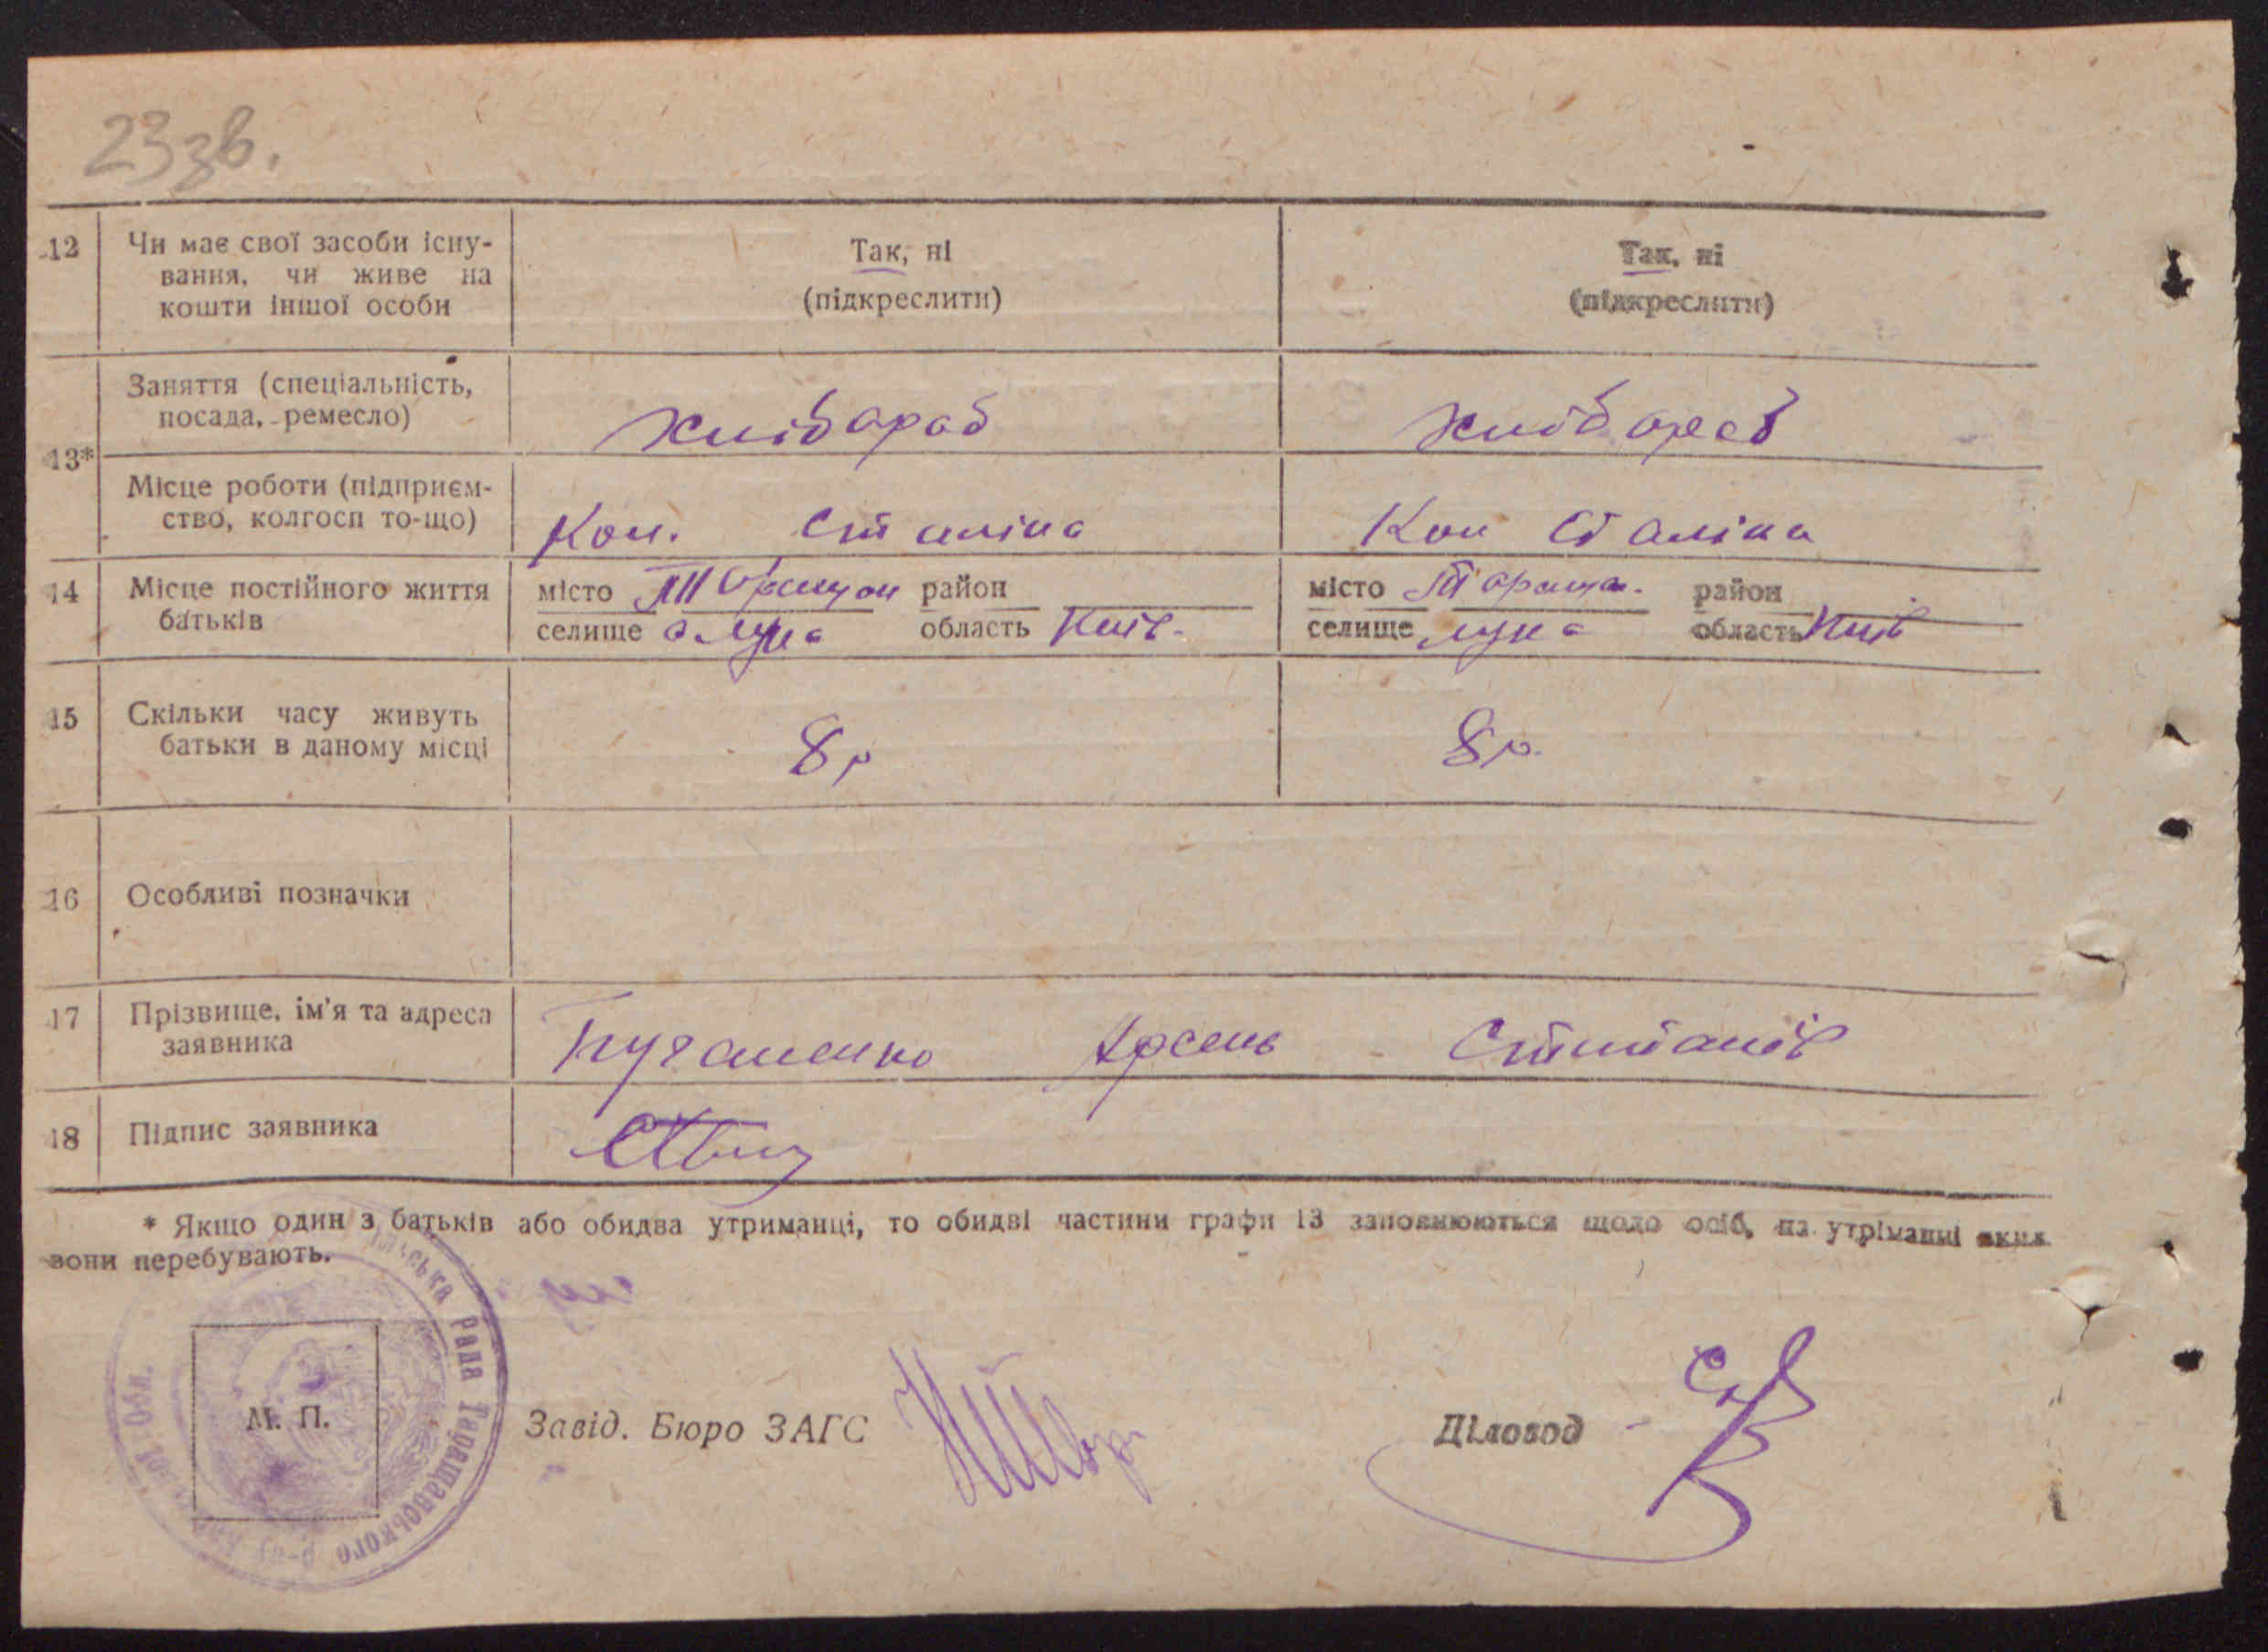 23 зв.
12 Чи має свої засоби існу- Так, ні Так, ні
вання, чи живе на (підкреслити) (підкреслити)
кошти іншої особи
Заняття (спеціальність,
посада, ремесло) Хлібараб Хлібараб
13*
Місце роботи (підприєм-
ство, колгосп то-що) Кол. Сталіна Кол Сталіна
14 Місце постійного життя місто район місто Тараща. район
батьків селище Лука область Київ. селище Лука область Київ
15 Скільки часу живуть 8 р 8 р.
батьки в даному місці
16 Особливі позначки
17 Прізвище, ім'я та адреса
заявника Арсень
18 Підпис заявника
* Якщо один з батьків або обидва утриманці, то обидві частини графи 13 заповнюються щодо осіб, на утріманні яких
вони перебувають.
Рада Таращавського р-ну Обл.
М. П. Завід. Бюро ЗАГС Діловод